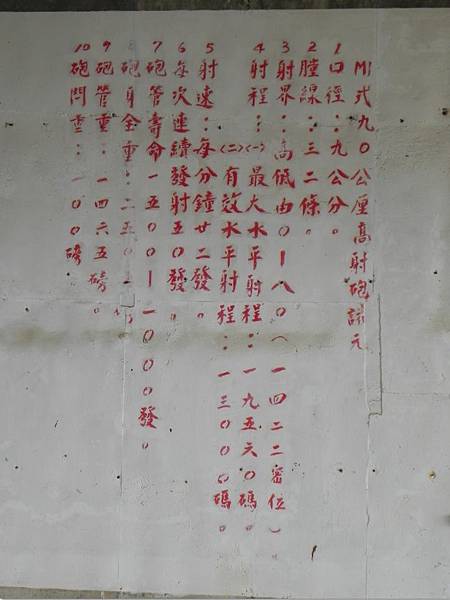 M1式九0公厘高射砲諸元
1口徑：九公分。
2膛線：三二條。
3射界：高低由0—八0(一四二二密位)。
4射程：(一)最大水平射程：一九五六0碼。
(二)有效水平射程：一三000碼。
5射速：每分鐘廿二發。
6每次連續發射五0發。
7砲管壽命一五00—一000發。
8砲身全重：二五0
9砲管重：一四六五磅。
10砲閂重：一00磅。